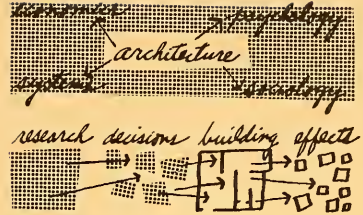 economics psychology
architecture
systems sociology
research decisions building effects